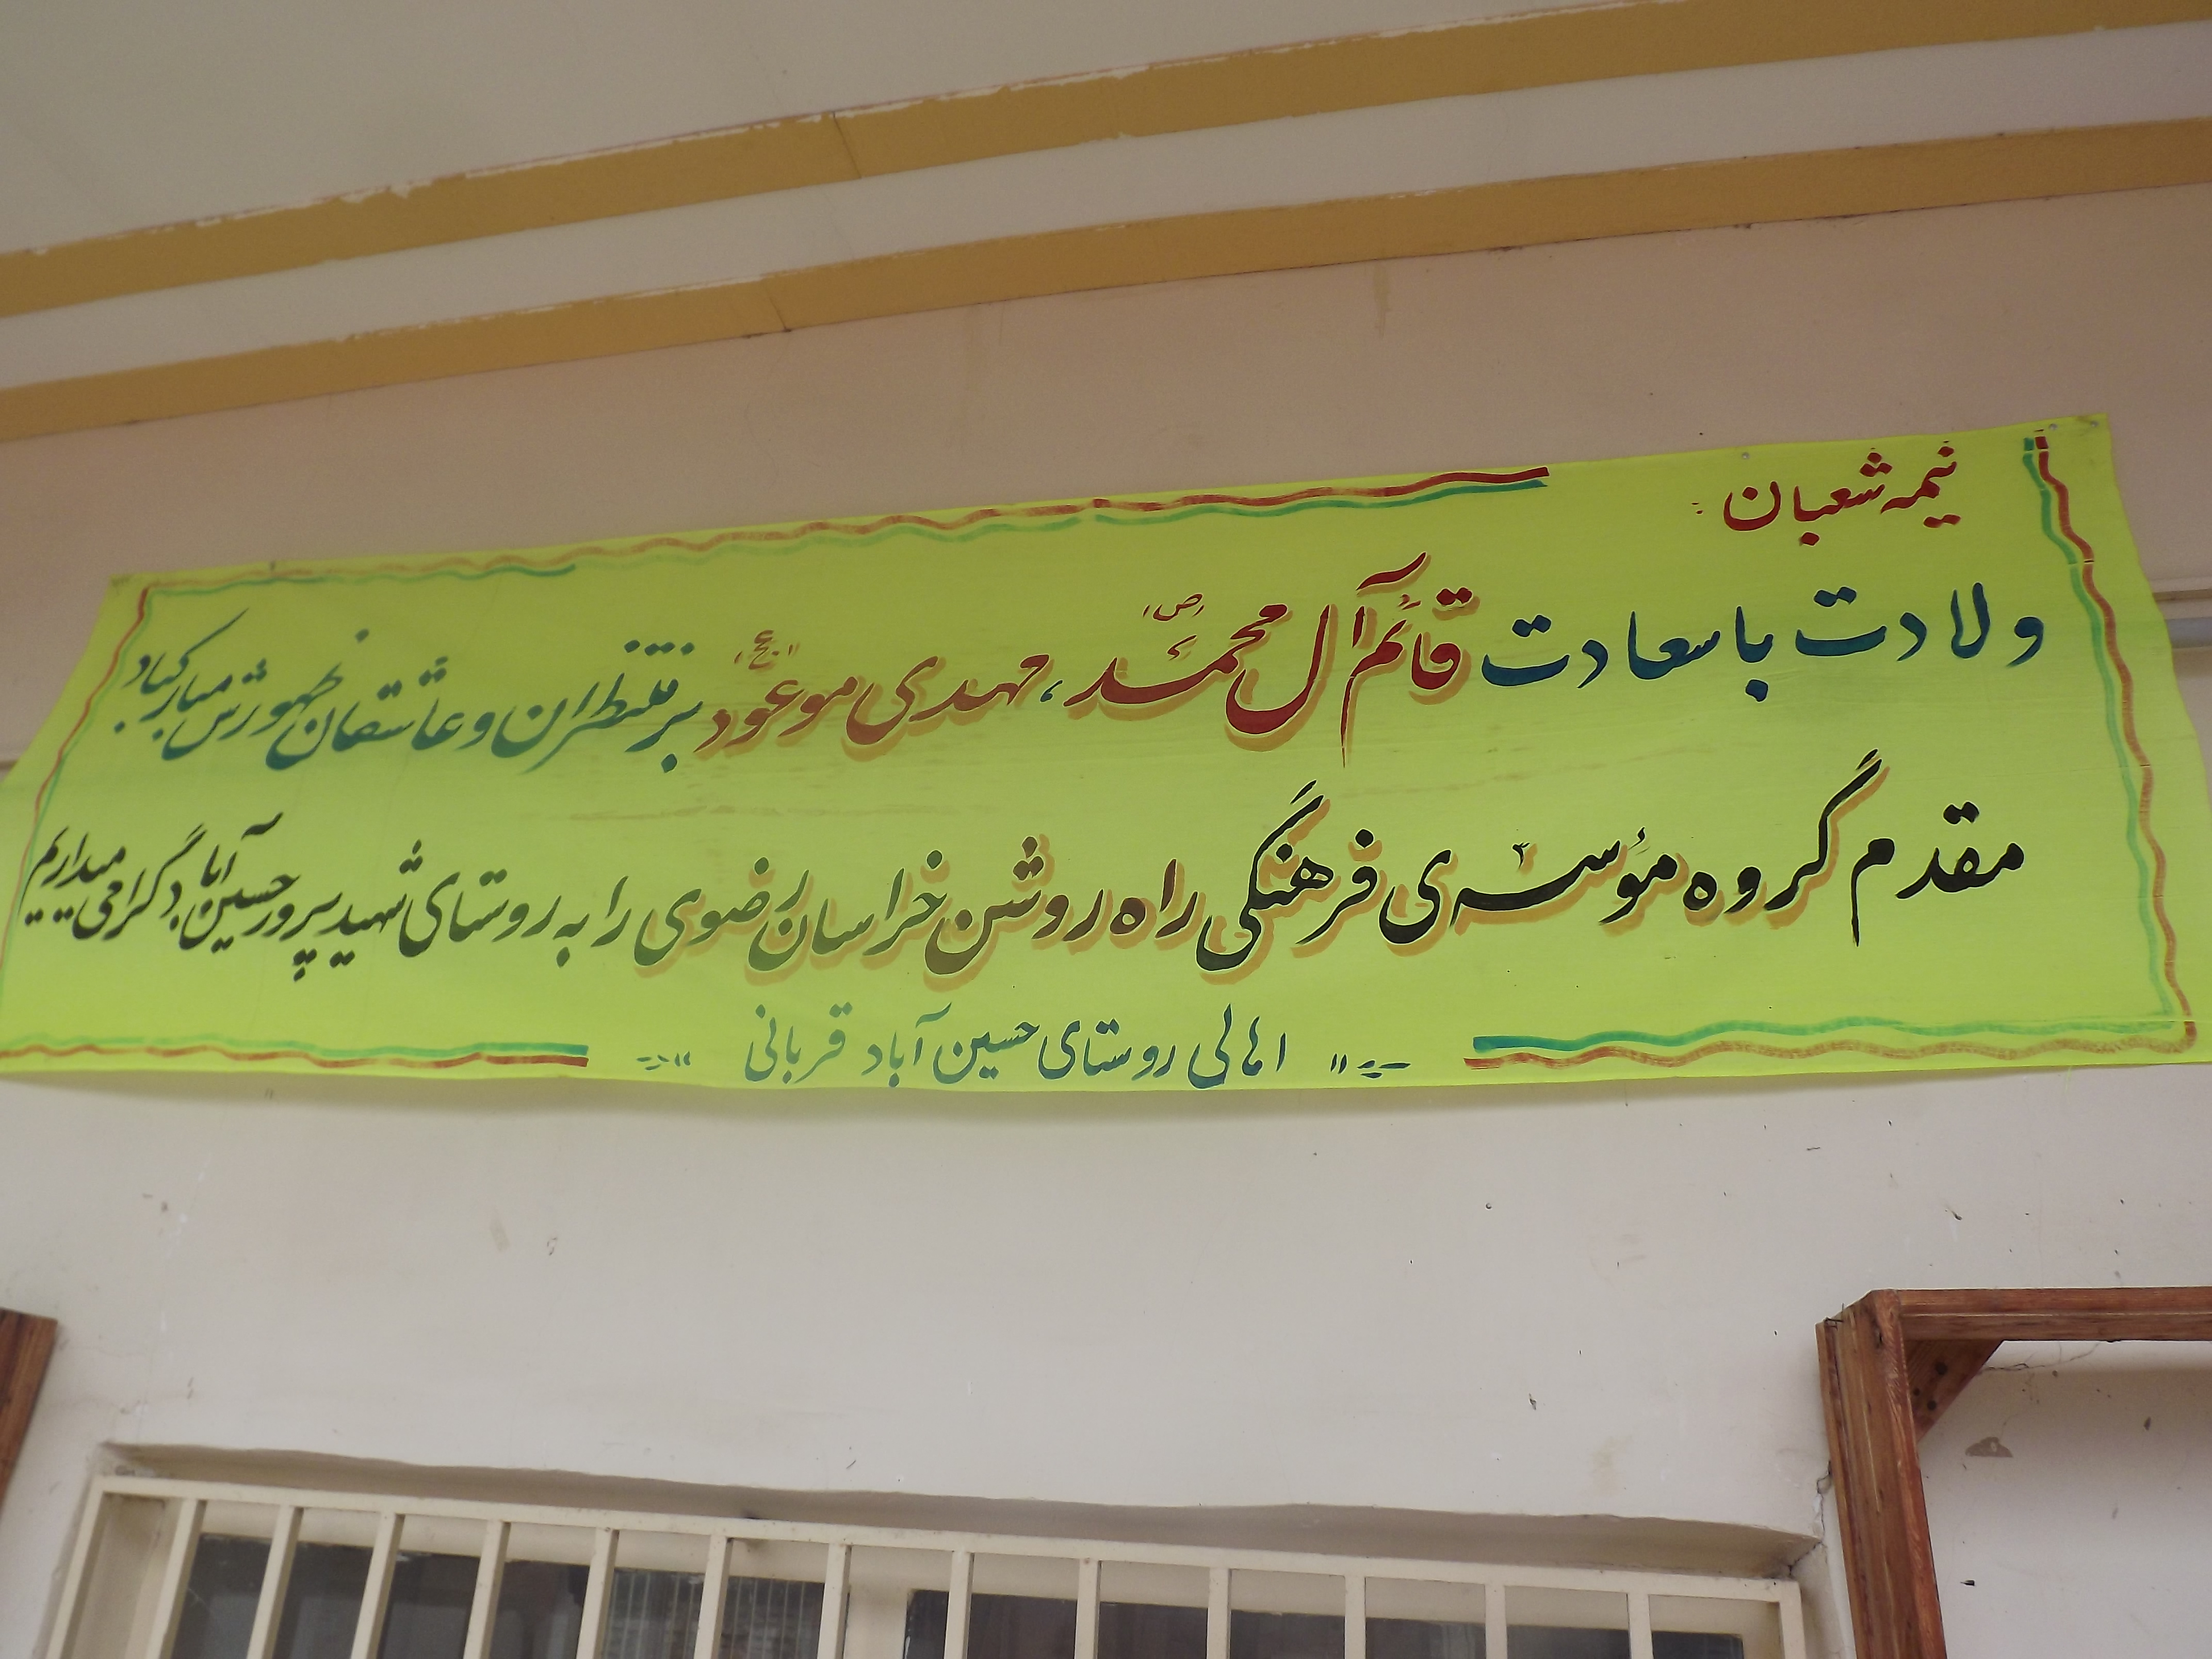 نیمه شعبان:
ولادت باسعادت قائم آل محمّد (ص)، مهدی موعود (عج) بر منتظران و عاشقان ظهورش مبارکباد.
مقدم گروه مؤسسه‌ی فرهنگی راه روشن خراسان رضوی را به روستای شهیدپرور حسین‌آباد گرامی میداریم
اهالی روستای حسین آباد قربانی